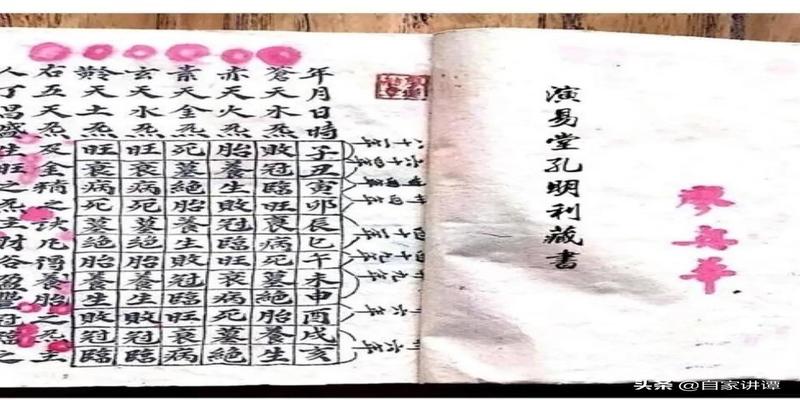 廖華
演易堂孔明利藏書
年月日時子丑寅卯辰巳午未申酉戌亥
蒼天木炁敗冠臨旺衰病死墓絕胎養生
赤天火炁胎養生敗冠臨旺衰病死墓絕
素天金炁死墓絕胎養生敗冠臨旺衰病
玄天水炁旺衰病死墓絕胎養生敗冠臨
黅天土炁旺衰病死墓絕胎養生敗冠臨
右五天炁及金精之訣凡得養胎之炁主
人丁昌盛生旺之炁主財谷盈豐冠臨之
头条 @自家讲谭